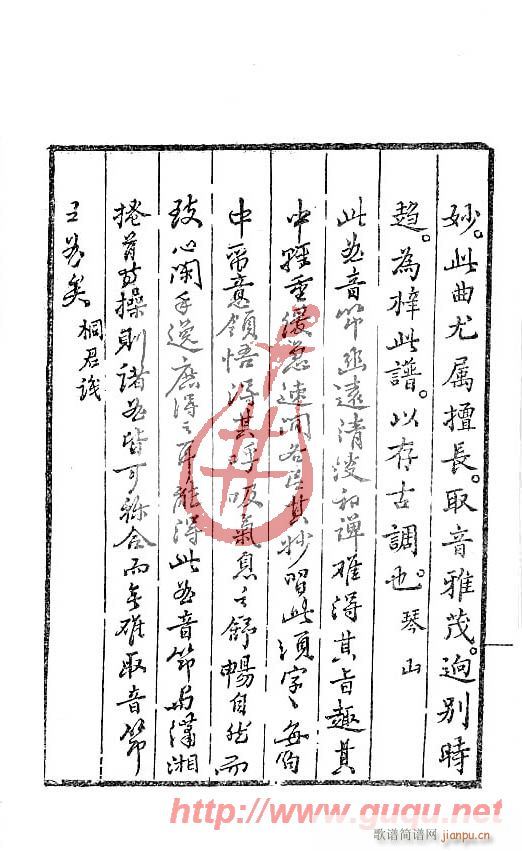 妙。此曲尤属擅長。取音雅茂。逈別時
趋。為梓此譜。以存古調也。琴山
此曲音節幽遠清淡和禪难得其旨趣其
中輕重緩急速間各臣其妙習此須字〻每句
中留意領悟得其呼吸氣息之舒暢自然而
致心閑手逸庶得之耳能得此曲音節与瀟湘
捲首操則諸曲皆可弥合而無难取音節
王矣 桐君識
http://www.guqu.net
歌谱简谱网
jianpu.cn